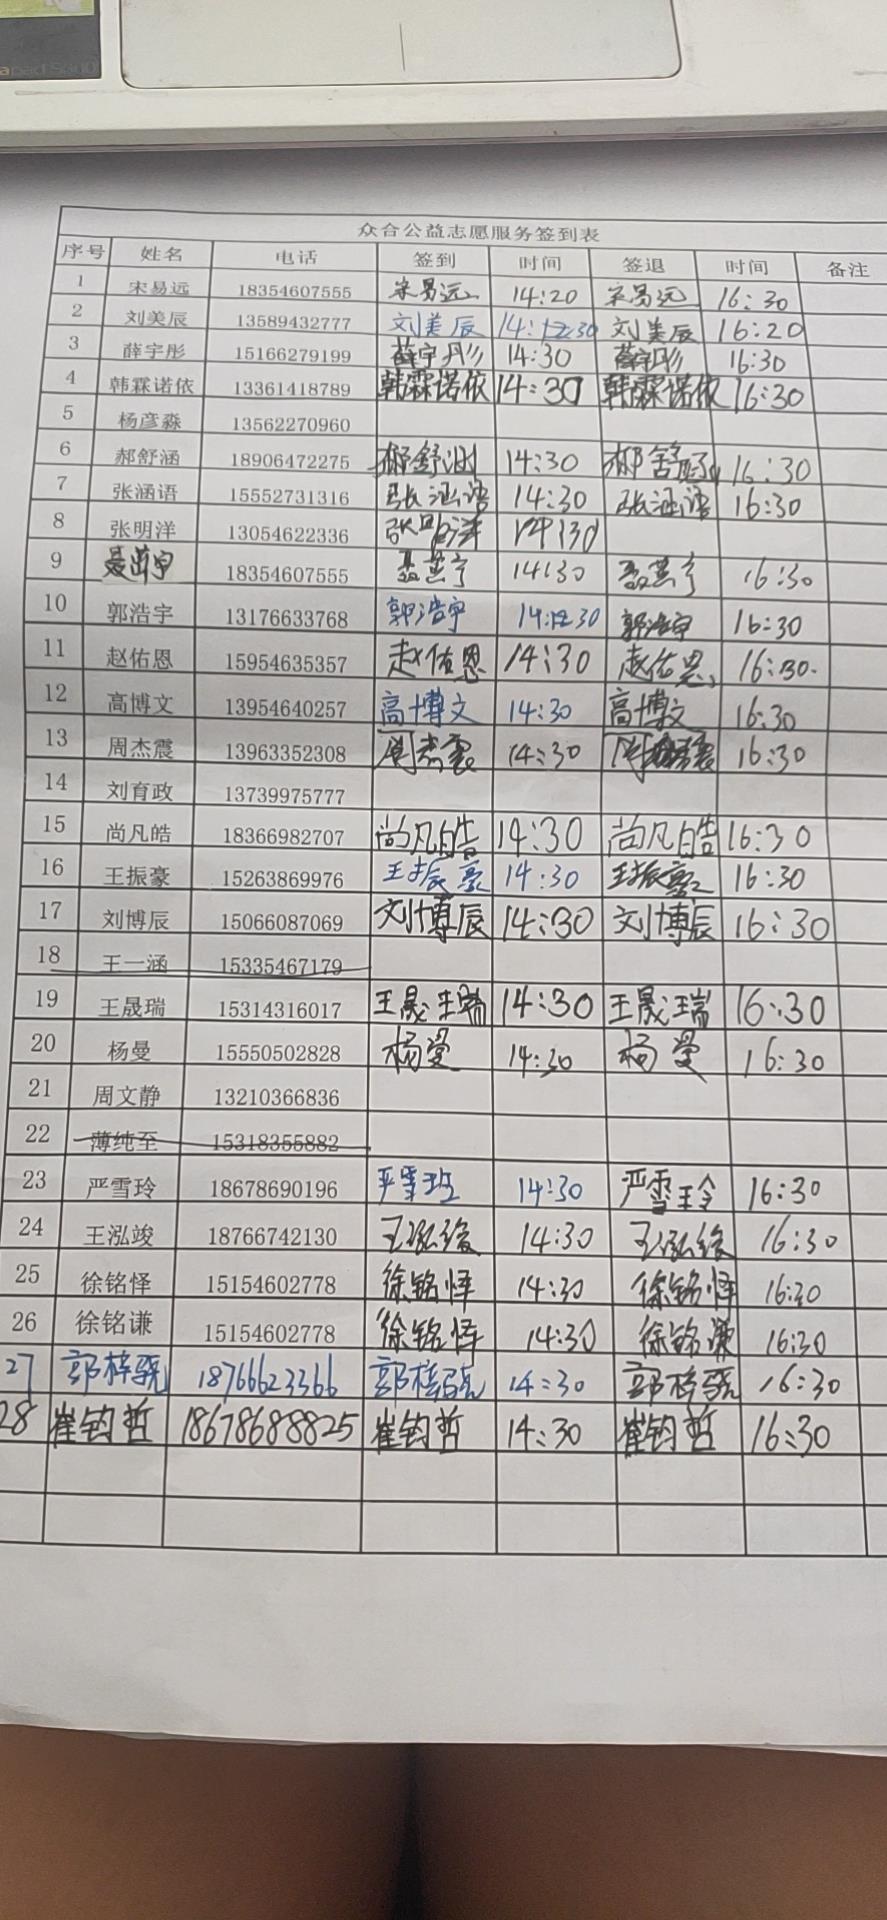 众合公益志愿服务签到表
序号 姓名 电话 签到 时间 签退 时间 备注
1 宋易远 18354607555 宋易远 14:20 宋易远 16:30
2 刘美辰 13589432777 刘美辰 刘美辰 16:20
3 薛宇彤 15166279199 薛宇彤 14:30 薛宇彤 16:30
4 韩霖诺依 13361418789 韩霖诺依 14:30 韩霖诺依 16:30
5 杨彦淼 13562270960
6 郝舒涵 18906472275 郝舒涵 14:30 16:30
7 张涵语 15552731316 张涵语 14:30 张涵语 16:30
8 张明洋 13054622336 张明洋 14:30
9 18354607555 14:30 16:30
10 郭浩宇 13176633768 郭浩宇 郭浩宇 16:30
11 赵佑恩 15954635357 赵佑恩 14:30 赵佑恩 16:30
12 高博文 13954640257 高博文 14:30 高博文 16:30
13 周杰震 13963352308 周杰震 14:30 16:30
14 刘育政 13739975777
15 尚凡皓 18366982707 尚凡皓 14:30 尚凡皓 16:30
16 王振豪 15263869976 王振豪 14:30 王振豪 16:30
17 刘博辰 15066087069 刘博辰 14:30 刘博辰 16:30
18 王一涵 15335467179
19 王晟瑞 15314316017 王晟瑞 14:30 王晟瑞 16:30
20 杨曼 15550502828 杨曼 14:30 杨曼 16:30
21 周文静 13210366836
22 薄纯至 15318355882
23 严雪玲 18678690196 14:30 严雪玲 16:30
24 王泓竣 18766742130 王泓竣 14:30 王泓竣 16:30
25 徐铭怿 15154602778 徐铭怿 14:30 徐铭怿 16:30
26 徐铭谦 15154602778 徐铭怿 14:30 徐铭谦 16:30
27 郭梓骁 18766623366 郭梓骁 14:30 郭梓骁 16:30
28 崔钧哲 18678688825 崔钧哲 14:30 崔钧哲 16:30